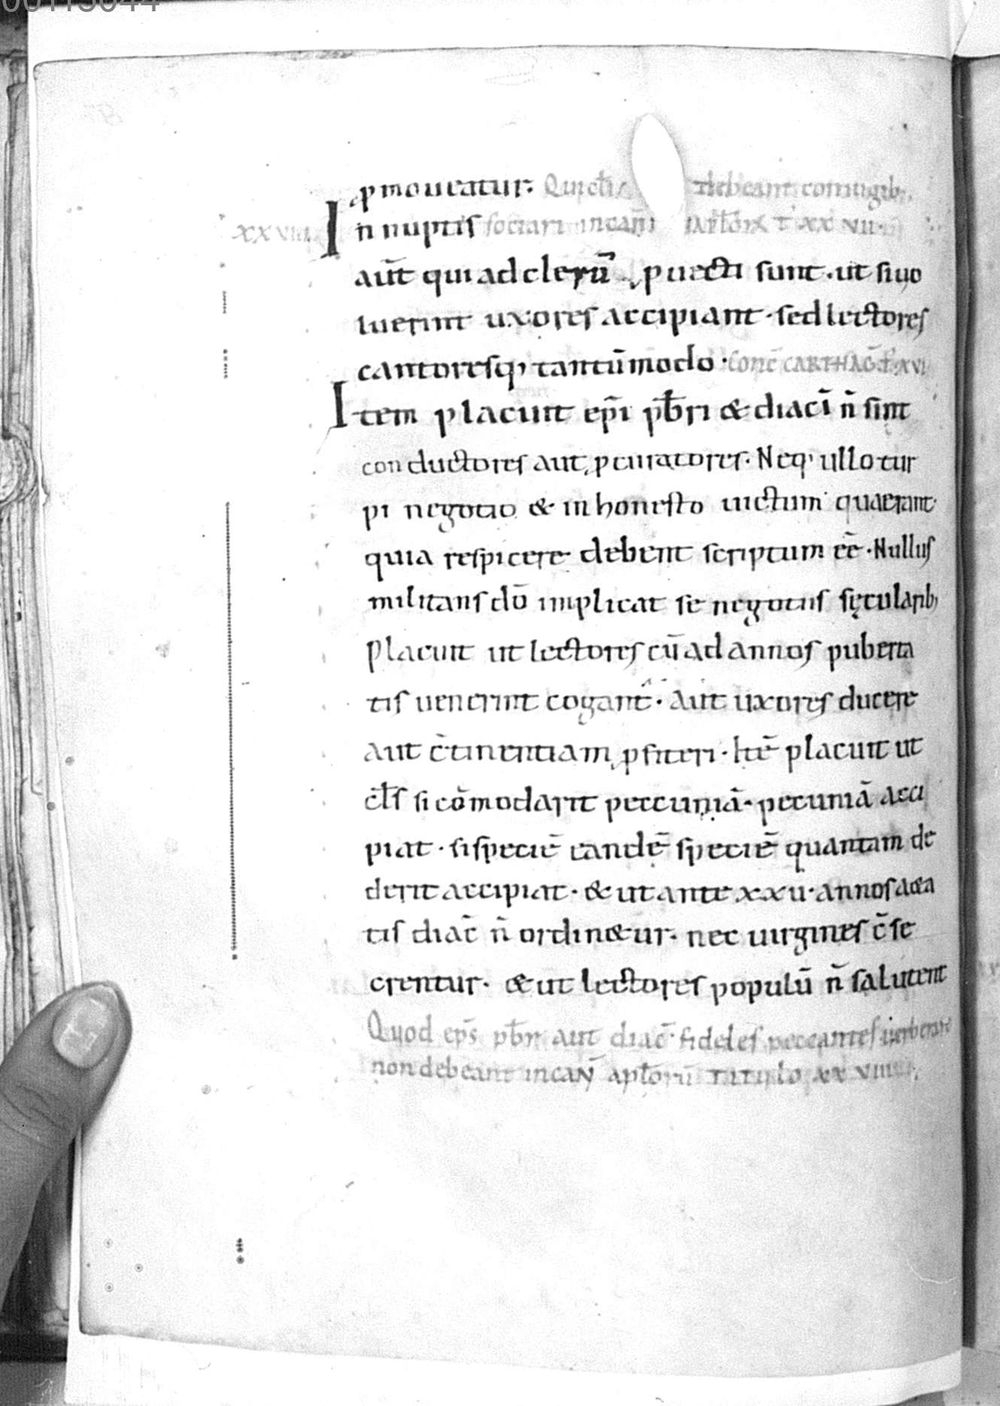 00113044
ꝓmoueatur. Qui cleri debeant coniugib;
XXVIII In nuptis sociari in can aplorx t XXVII.
aut̄ qui ad clerū ꝓuecti sunt. ut si uo
luerint uxores accipiant. sed lectores
cantoresq; tantūmodo. Conc̄ CARTHAG̅ t̅ XVI
Item placuit ep̄i p̄bri & diaci n̄ sint
conductores aut ꝓcuratores. Neq; ullo tur
pi negotio & inhonesto uictum quaerant.
quia respicere debent scriptum eē. Nullus
militans dō implicat se negotiis sęcularib;
Placuit ut lectores cū ad annos puberta
tis uenerint cogant̄. Aut uxores ducere
aut c̄tinentiam ꝓfiteri. Itē placuit ut
cl̄s si cōmodarit peccuniā. pecuniā acci
piat. si speciē eandē speciē quantam de
derit accipiat. & ut ante xxu. annos aeta
tis diac̄ n̄ ordinetur. nec uirgines c̄se
crentur. & ut lectores populū n̄ salutent
Quod ep̄s p̄br aut diac̄ fideles peccantes uerberare
non debeant in can̄ aplorū TITULO XXVIIII